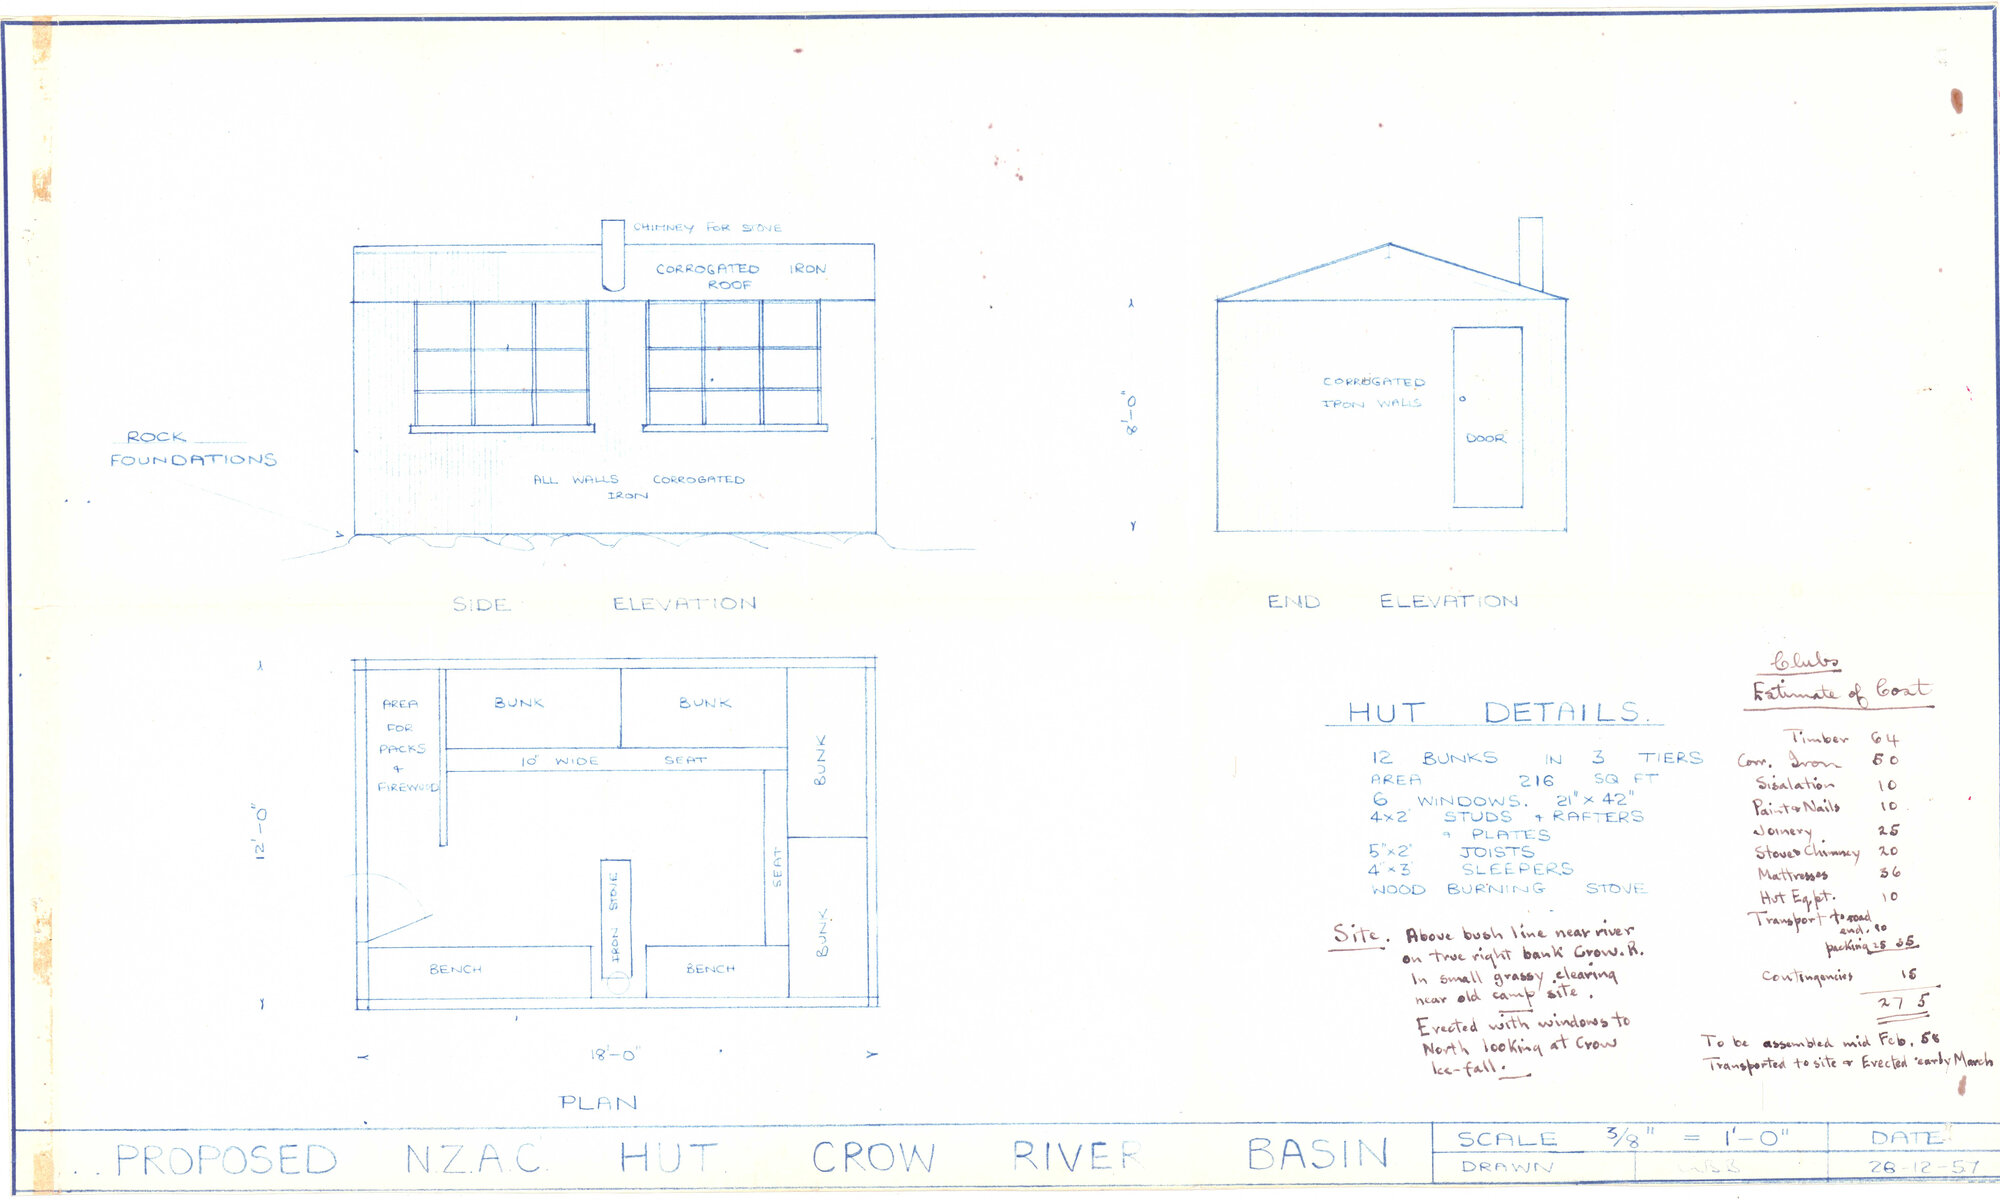 CHIMNEY FOR STOVE
CORROGATED IRON
ROOF
ROCK
FOUNDATIONS
ALL WALLS CORROGATED
IRON
SIDE ELEVATION
8'-0"
CORROGATED
IRON WALLS
DOOR
END ELEVATION
12'-0"
AREA
FOR
PACKS
&
FIREWOOD
BUNK
BUNK
10" WIDE SEAT
BUNK
SEAT
BUNK
IRON STOVE
BENCH
BENCH
18'-0"
PLAN
HUT DETAILS.
12 BUNKS IN 3 TIERS
AREA 216 SQ FT
6 WINDOWS. 21" X 42"
4x2" STUDS & RAFTERS
& PLATES
5"x2" JOISTS
4"x3" SLEEPERS
WOOD BURNING STOVE
Site. Above bush line near river
on true right bank Crow. R.
In small grassy clearing
near old camp site.
Erected with windows to
North looking at Crow
Ice-fall.
Clubs
Estimate of Cost
Timber 64
Corr. Iron 50
Sisalation 10
Paint & Nails 10
Joinery 25
Stove & Chimney 20
Mattresses 36
Hut Eqpt. 10
Transport to road
end. 10
packing 25 35
Contingencies 15
275
To be assembled mid Feb. 58
Transported to site & Erected early March
PROPOSED N.Z.A.C. HUT. CROW RIVER BASIN
SCALE 3/8" = 1'-0"
DATE
DRAWN
26-12-57